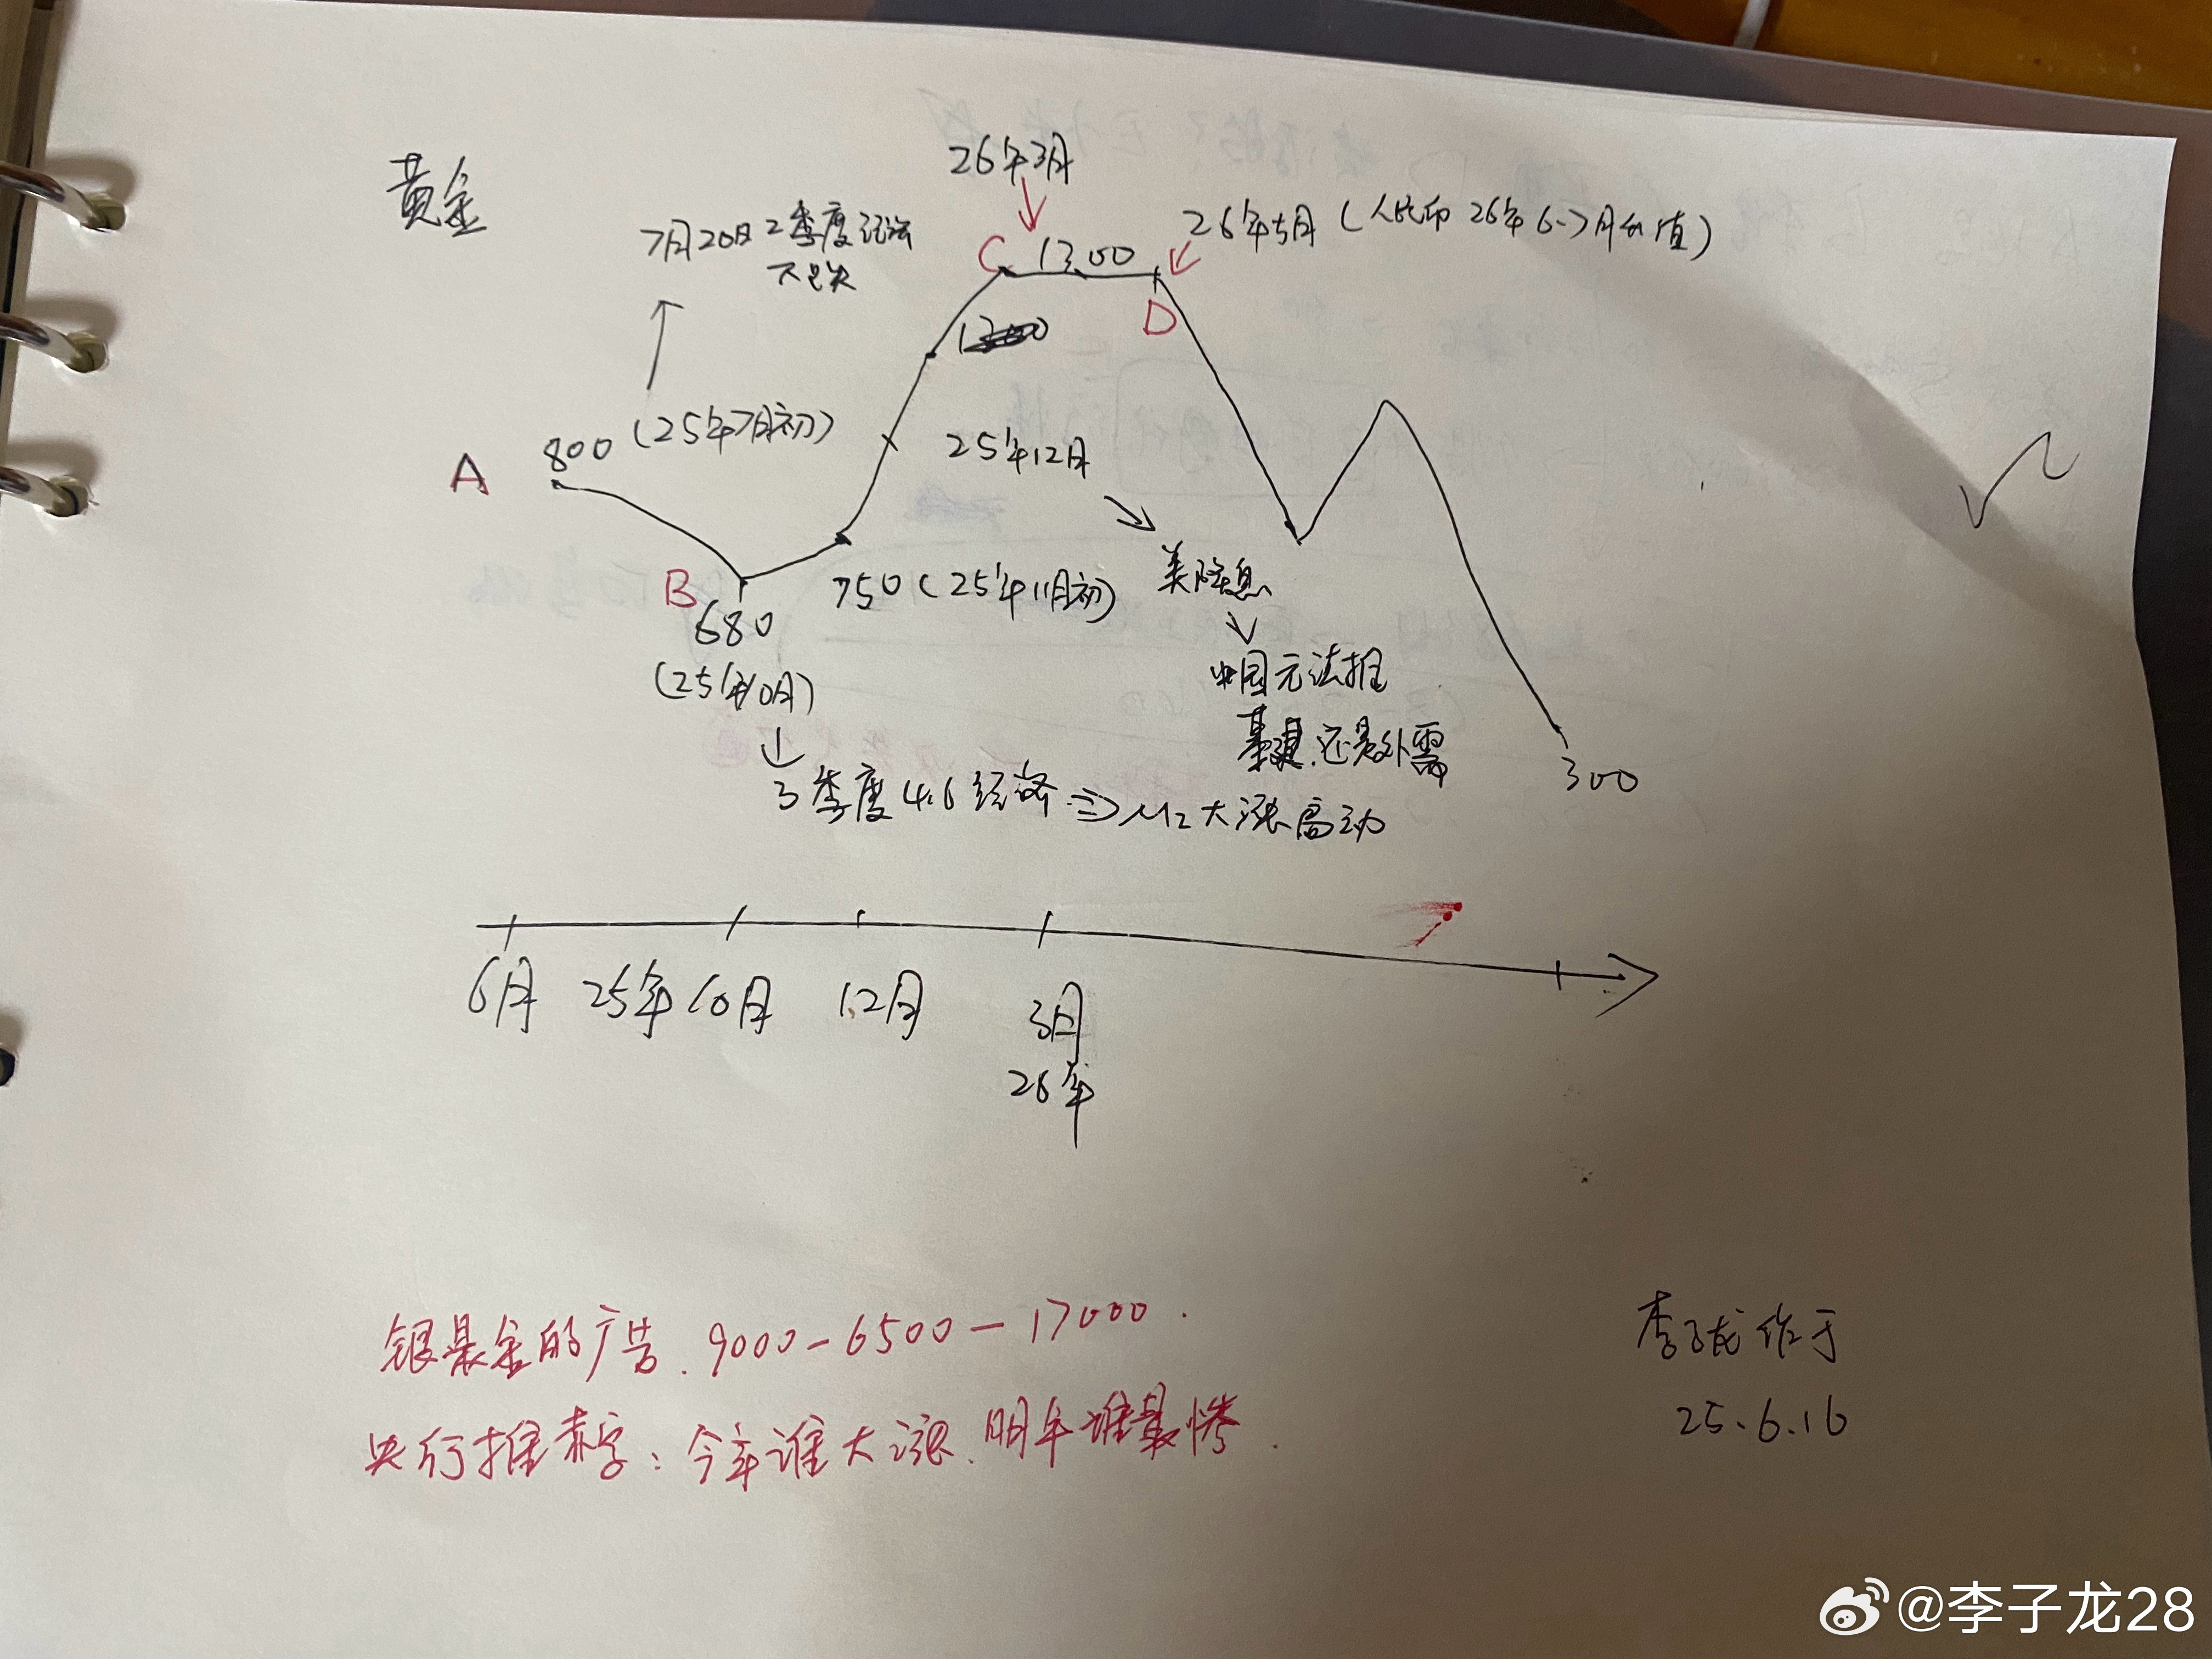 黄金
26年3月
7月20日2季度经济
不已失
26年5月(人民币 26年6-7月价值)
C 1300
D
800 (25年7月初)
A
25年12月
B
680
(25年10月)
750(25年11月初)
美降息
中国无法推
基建.还是外需
300
3季度4.6经济⇒M2大涨高动
6月 25年10月 12月 3月
26年
银是金的广告.9000-6500-17000.
央行推赤字:今年谁大涨.明年谁最惨.
李子龙作于
25.6.16
@李子龙28